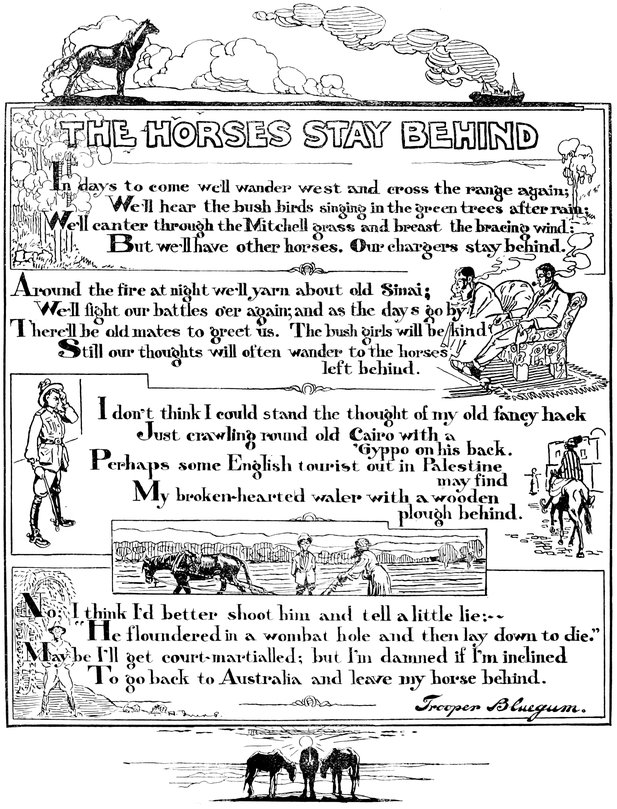 THE HORSES STAY BEHIND
In days to come we'll wander west and cross the range again;
We'll hear the bush birds singing in the green trees after rain;
We'll canter through the Mitchell grass and breast the bracing wind:
But we'll have other horses. Our chargers stay behind.
Around the fire at night we'll yarn about old Sinai;
We'll fight our battles o'er again; and as the days go by
There'll be old mates to greet us. The bush girls will be kind
Still our thoughts will often wander to the horses
left behind.
I don't think I could stand the thought of my old fancy hack
Just crawling round old Cairo with a
'Gyppo on his back.
Perhaps some English tourist out in Palestine
may find
My broken-hearted waler with a wooden
plough behind.
No: I think I'd better shoot him and tell a little lie:--
"He floundered in a wombat hole and then lay down to die."
Maybe I'll get court-martialled; but I'm damned if I'm inclined
To go back to Australia and leave my horse behind.
Trooper Bluegum.